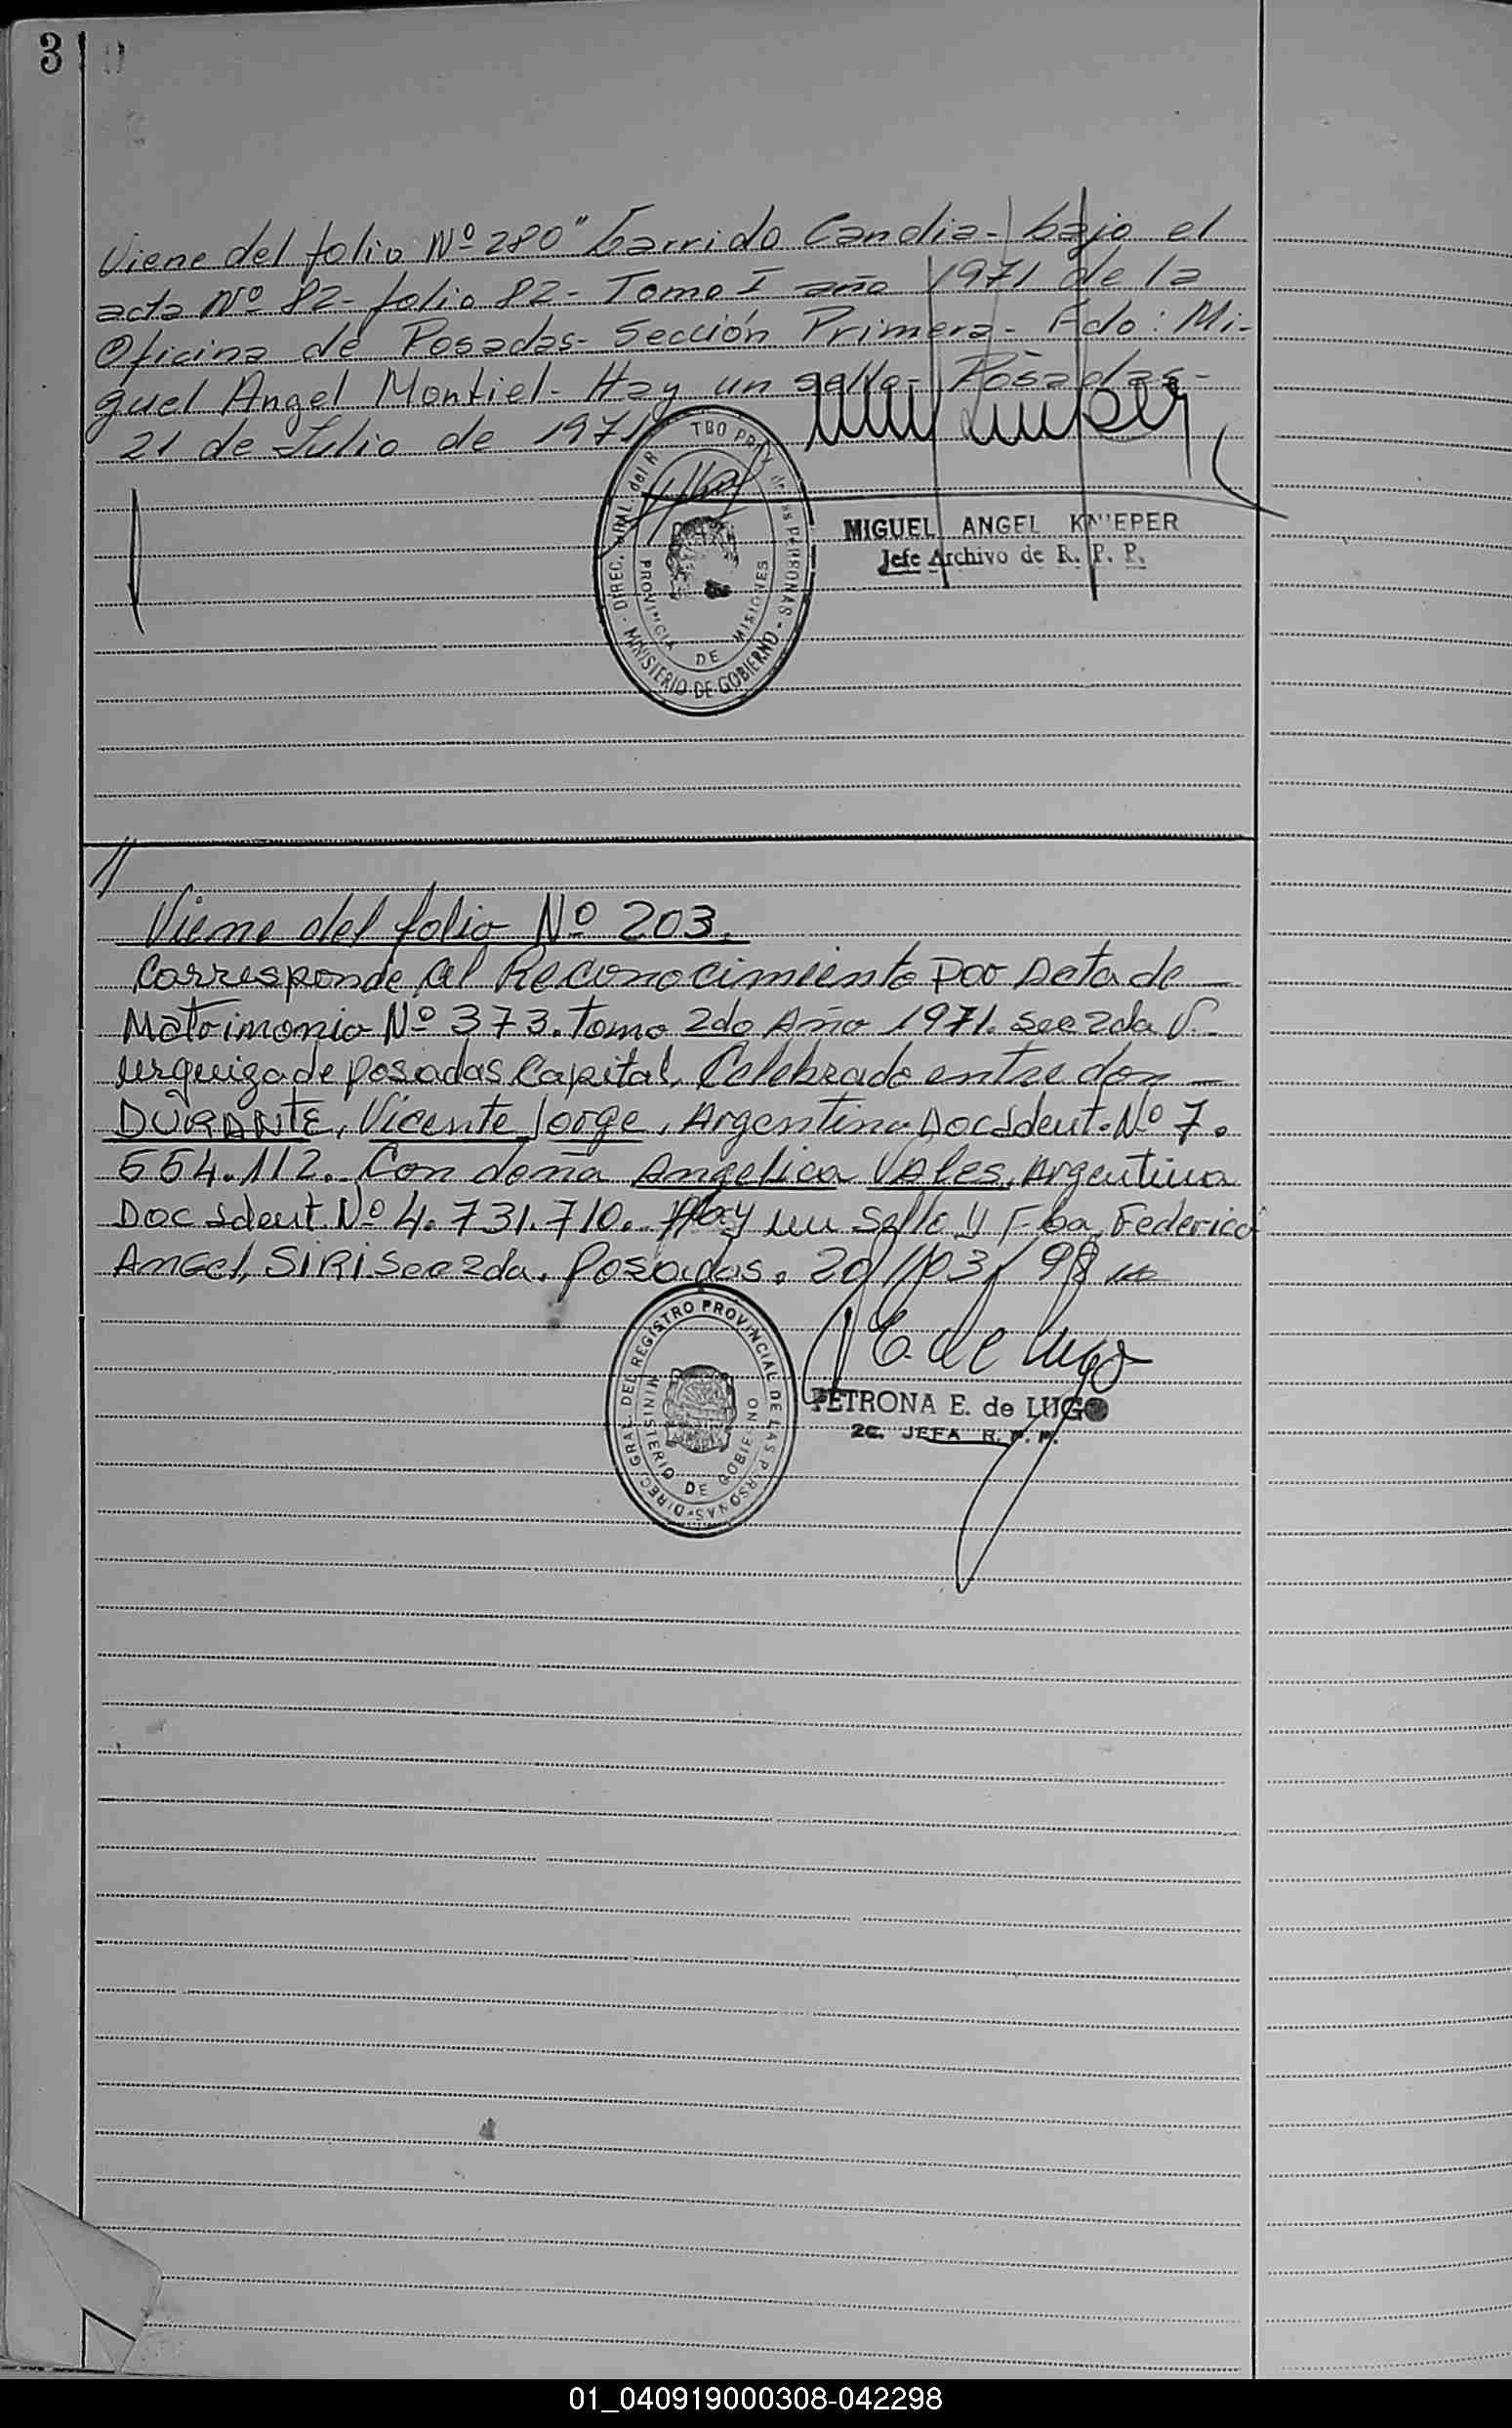 310
Viene del folio Nº 280" Garrido Candia - bajo el
acta Nº 82 - folio 82 - Tomo I año 1971 de la
Oficina de Posadas - Sección Primera - Fdo: Mi-
guel Angel Montiel - Hay un sello - Posadas -
21 de Julio de 1971
MIGUEL ANGEL KNEPER
Jefe Archivo de R. P. P.
DIREC. GRAL. del R TRO PROV. de las PERSONAS - MINISTERIO DE GOBIERNO -
PROVINCIA DE MISIONES
Viene del folio Nº 203.
Corresponde al Reconocimiento por Acta de
Matrimonio Nº 373. tomo 2do Año 1971. Sec 2da V.
Urquiza de posadas Capital, Celebrado entre don
DURANTE, Vicente Jorge, Argentino. Doc Ident. Nº 7.
554.112. Con doña Angelica VALES, Argentina
Doc Ident. Nº 4.731.710. Hay un Sello y Fba, Federico
Angel, SIRI. Sec 2da. Posadas. 20/03/98
E. de Lugo
PETRONA E. de LUGO
2C. JEFA R. P. P.
DIREC. GRAL. DEL REGISTRO PROVINCIAL DE LAS PERSONAS -
MINISTERIO DE GOBIERNO
01_040919000308-042298